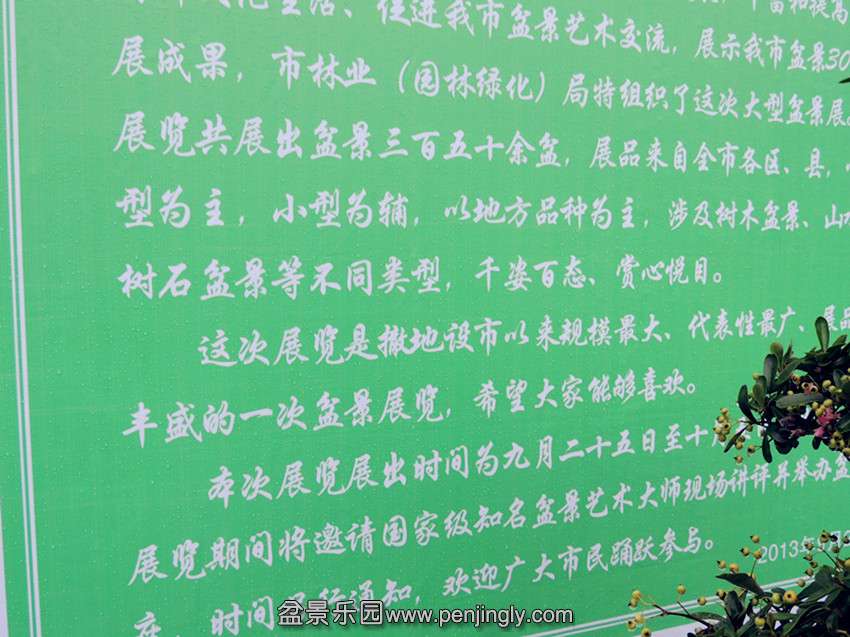 化生活、促进我市盆景艺术交流，展示我市盆景30
展成果，市林业（园林绿化）局特组织了这次大型盆景展。
展览共展出盆景三百五十余盆，展品来自全市各区、县，
型为主，小型为辅，以地方品种为主，涉及树木盆景、山水
树石盆景等不同类型，千姿百态、赏心悦目。
这次展览是撤地设市以来规模最大、代表性最广、展品
丰盛的一次盆景展览，希望大家能够喜欢。
本次展览展出时间为九月二十五日至十月
展览期间将邀请国家级知名盆景艺术大师现场讲评并举办盆
座，时间另行通知，欢迎广大市民踊跃参与。
2013年9月
盆景乐园www.penjingly.com